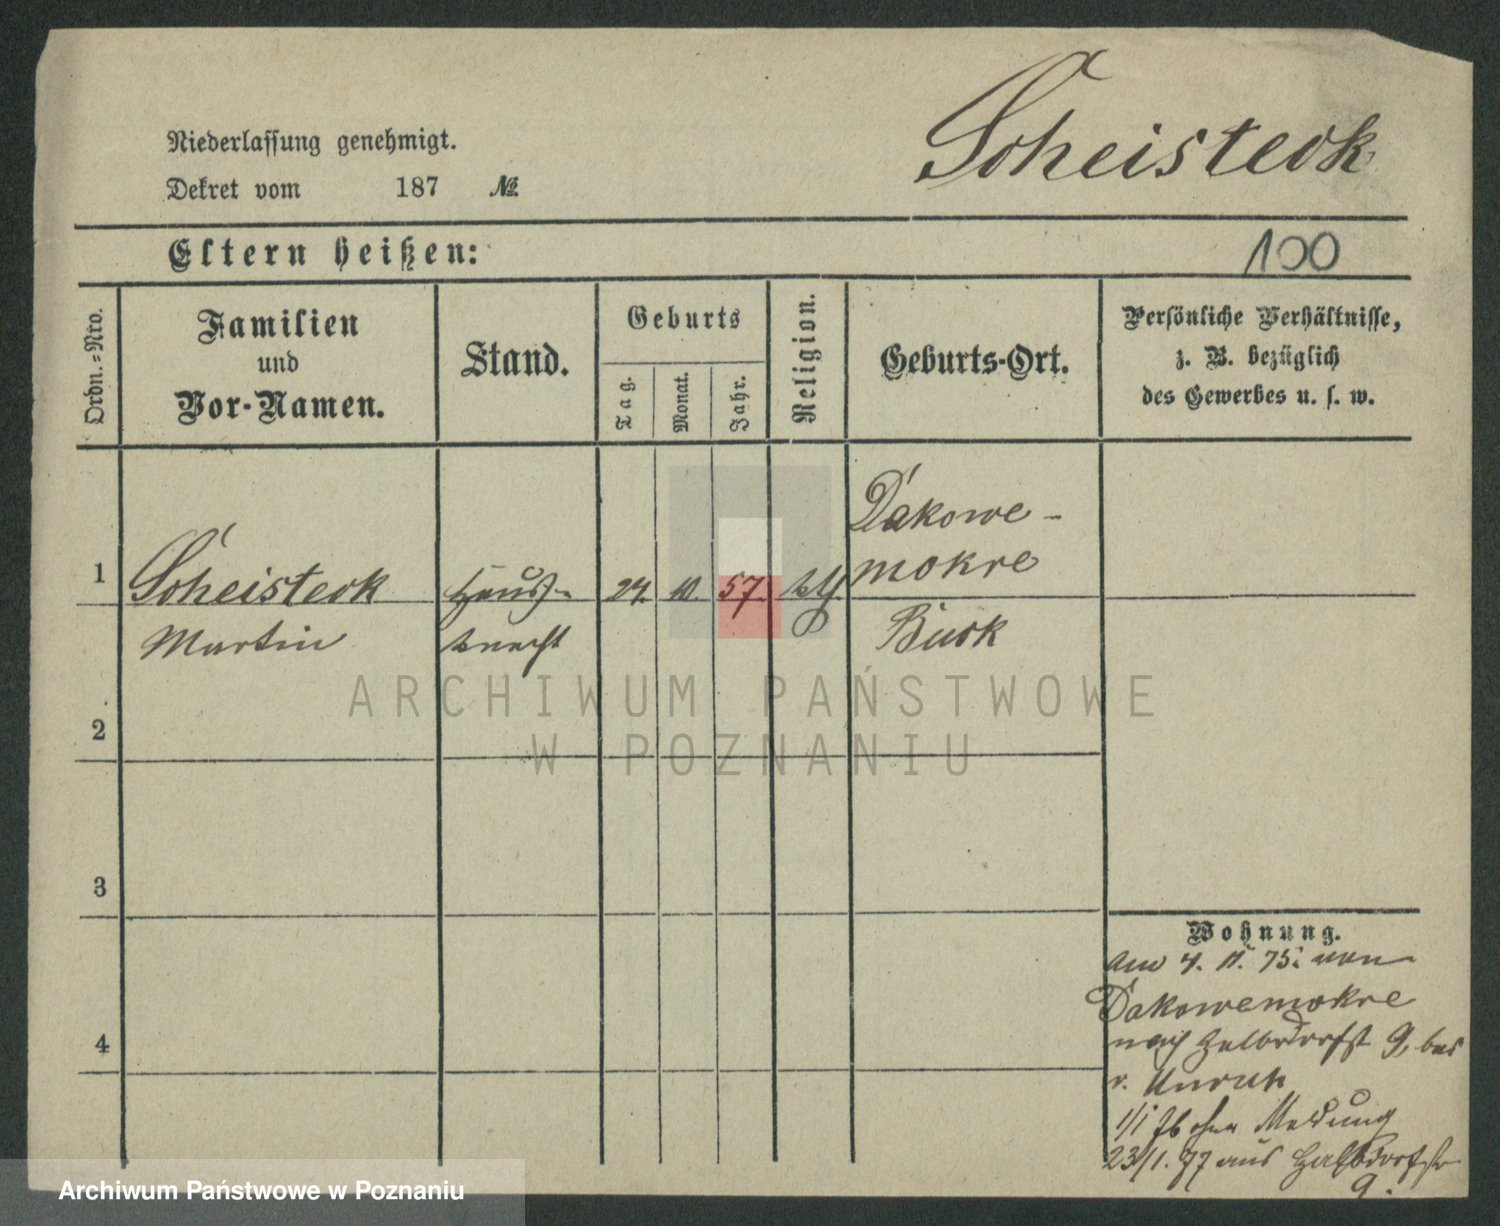 Scheisteck
Niederlassung genehmigt.
Dekret vom 187 №
Eltern heißen:
100
Ordn.=Nro.
Familien
und
Vor-Namen.
Stand.
Geburts
Tag.
Monat.
Jahr.
Religion.
Geburts-Ort.
Persönliche Verhältnisse,
z. B. bezüglich
des Gewerbes u. s. w.
1
Scheisteck
Martin
Haus-
knecht
11.
57.
kth
Dakowe-
mokre
Buck
2
3
4
Wohnung.
am 4. 11. 75. von
Dakowemokre
nach Halbdorfst 9, bei
v. Unruh
1/1 76 ohne Meldung
23/1. 77 aus Halbdorfstr
9.
ARCHIWUM PAŃSTWOWE
W POZNANIU
Archiwum Państwowe w Poznaniu